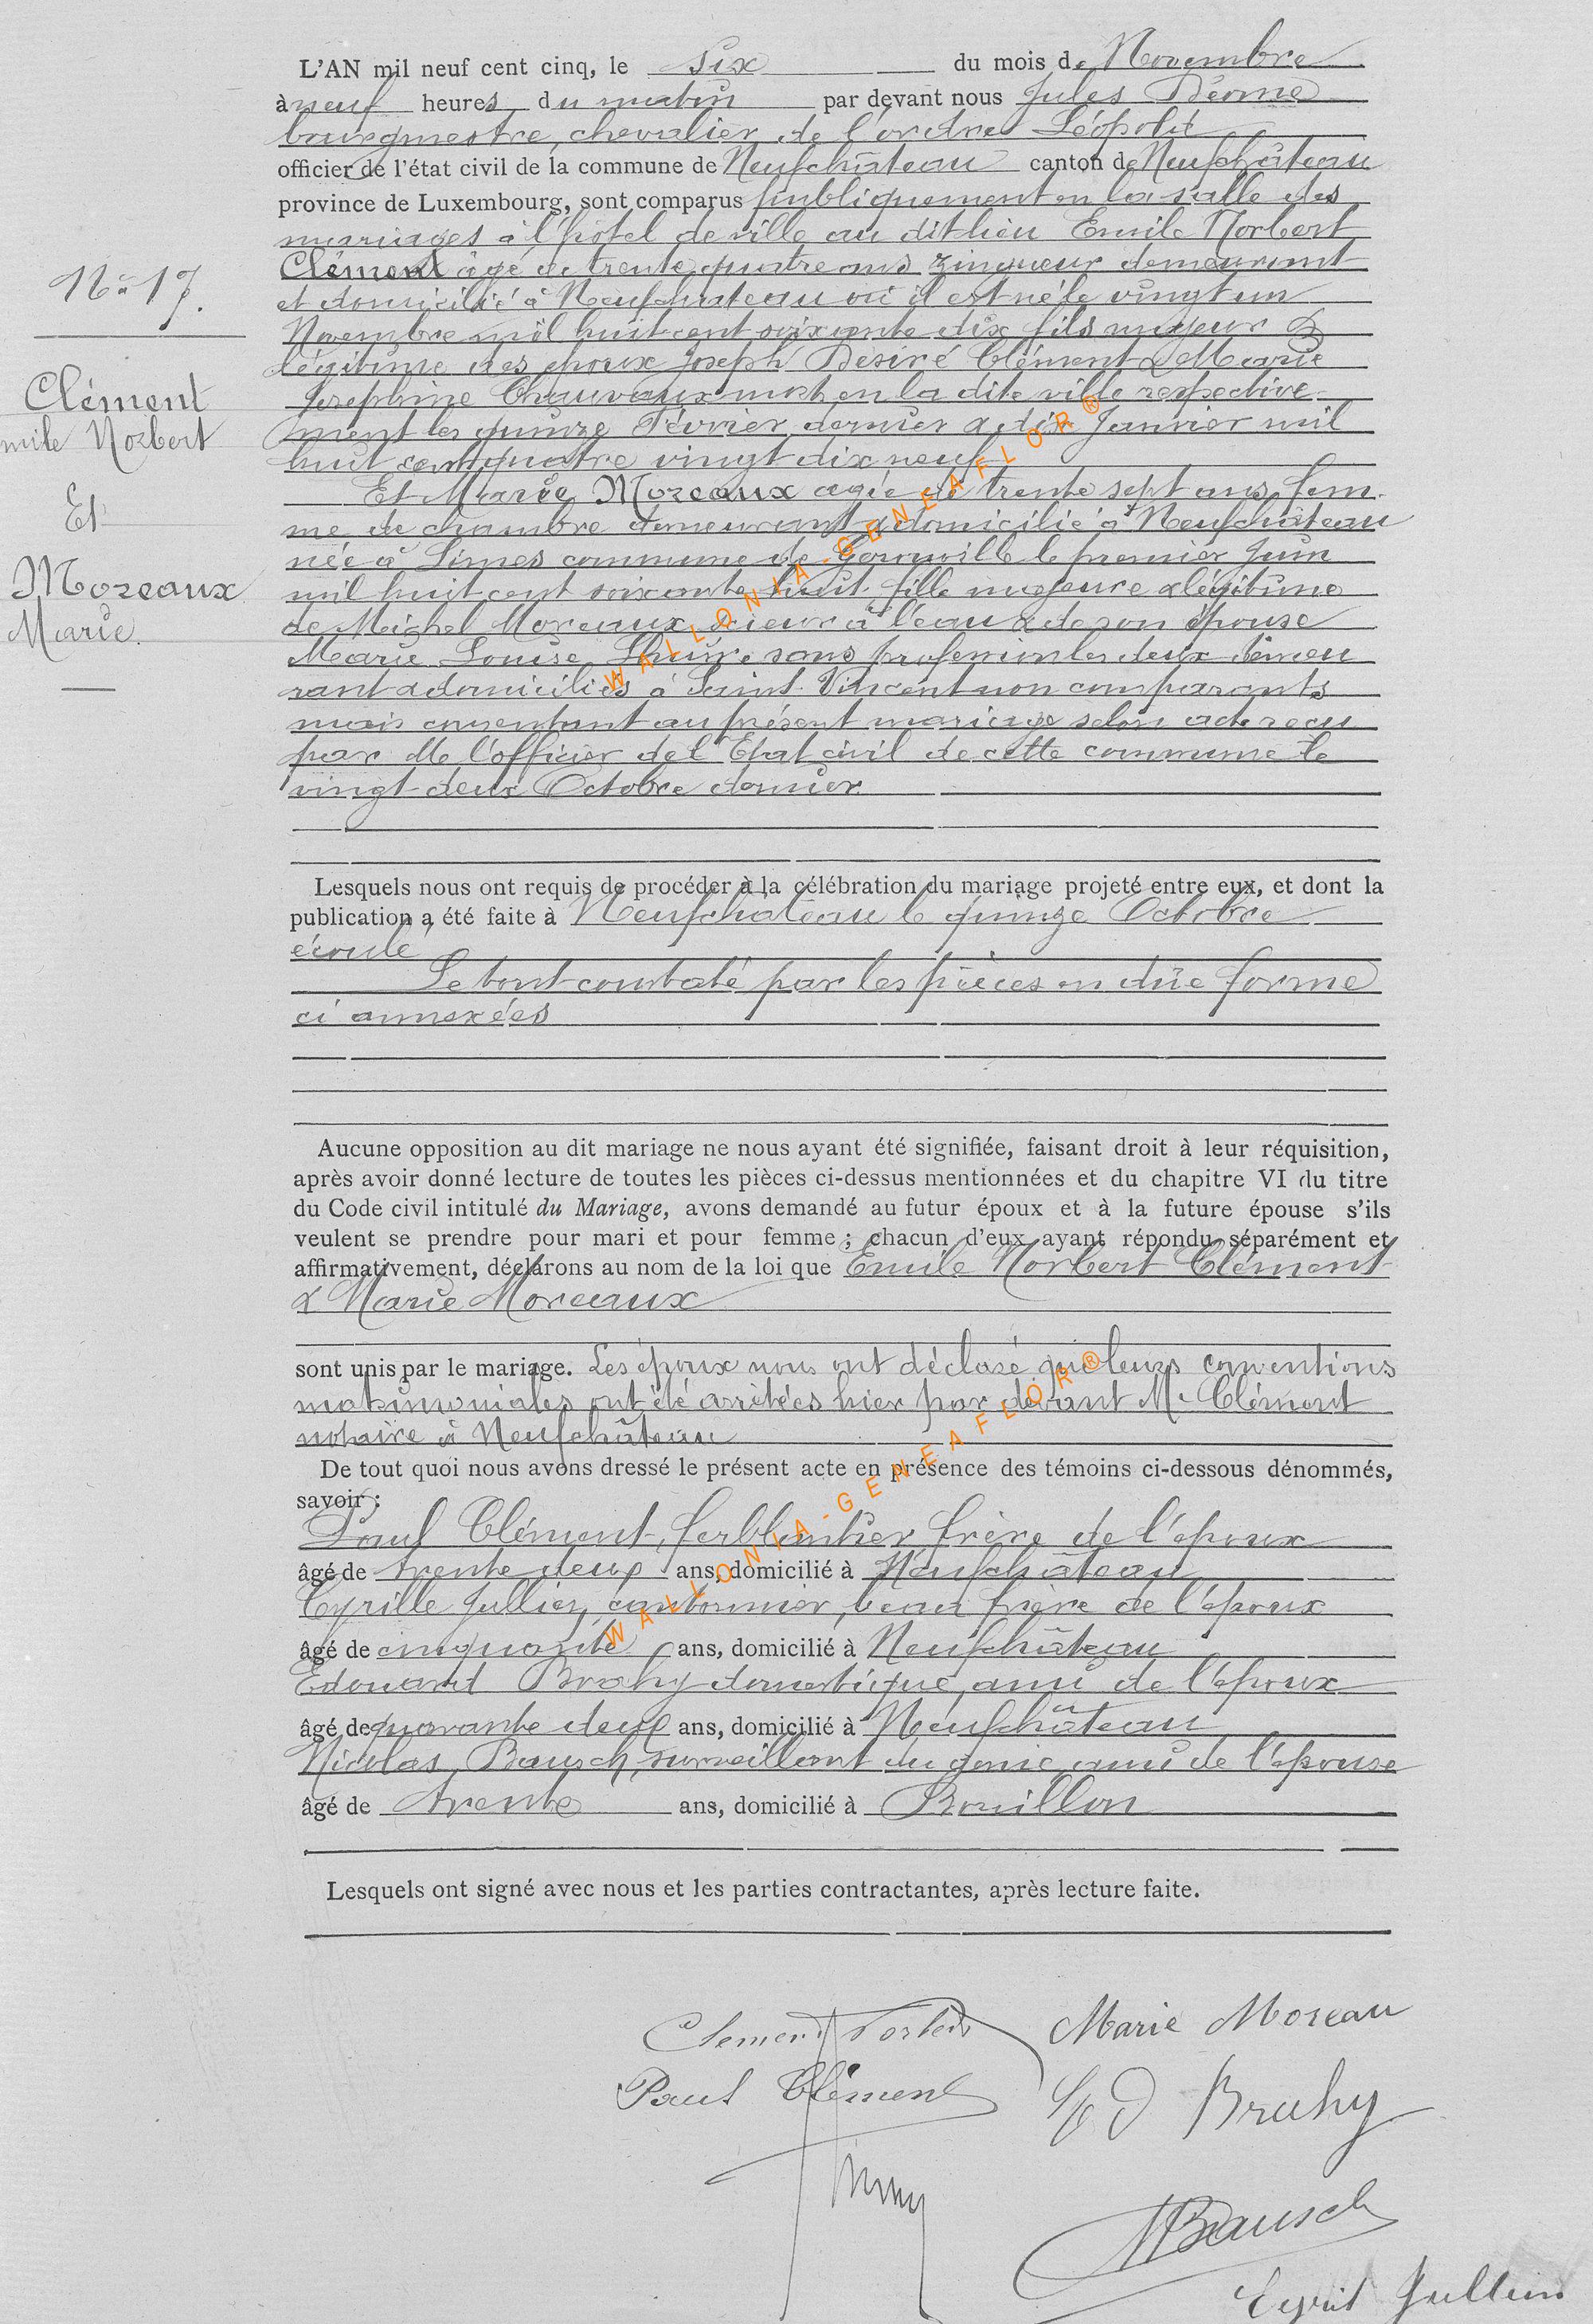 L'AN mil neuf cent cinq, le six du mois de Novembre
à neuf heures du matin par devant nous Jules
bourgmestre, chevalier de l'ordre Léopold
officier de l'état civil de la commune de Neufchâteau canton de Neufchâteau
province de Luxembourg, sont comparus publiquement en la salle des
mariages à l'hôtel de ville au dit lieu Emile Norbert
Clément âgé de trente quatre ans zingueur demeurant
et domicilié à Neufchâteau où il est né le vingt un
Novembre mil huit cent soixante dix fils majeur &
légitime des époux Joseph Désiré Clément & Marie
Josephine Chauvaux morts en la dite ville respective-
ment les quinze Février dernier & dix Janvier mil
huit cent quatre vingt dix neuf
Et Marie Moreaux agée de trente sept ans, fem-
me de chambre demeurant & domicilié à Neufchâteau
née à Limes commune de Gérouville le premier Juin
mil huit cent soixante huit fille majeure & légitime
de Michel Moreaux scieur à l'eau & de son épouse
Marie Louise sans profession les deux demeu
rant & domiciliés à Saint-Vincent non comparants
mais consentant au présent mariage selon acte reçu
par Mr l'officier de l'Etat civil de cette commune le
vingt-deux Octobre dernier
Nº 17.
Clément
mile Norbert
Et
Moreaux
Marie.
Lesquels nous ont requis de procéder à la célébration du mariage projeté entre eux, et dont la
publication a été faite à Neufchâteau le quinze Octobre
écoulé
Le tout constaté par les pièces en dûe forme
ci annexées
Aucune opposition au dit mariage ne nous ayant été signifiée, faisant droit à leur réquisition,
après avoir donné lecture de toutes les pièces ci-dessus mentionnées et du chapitre VI du titre
du Code civil intitulé du Mariage, avons demandé au futur époux et à la future épouse s'ils
veulent se prendre pour mari et pour femme ; chacun d'eux ayant répondu séparément et
affirmativement, déclarons au nom de la loi que Emile Norbert Clément
& Marie Moreaux
sont unis par le mariage. Les époux nous ont déclaré que leurs conventions
matrimoniales ont été arrêtées hier par devant Me Clément
notaire à Neufchâteau
De tout quoi nous avons dressé le présent acte en présence des témoins ci-dessous dénommés,
savoir :
Paul Clément, ferblantier frère de l'époux
âgé de trente deux ans, domicilié à Neufchâteau
Cyrille Jullien, cantonnier, beau frère de l'époux
âgé de cinquante ans, domicilié à Neufchâteau
Edouard Brahy domestique, ami de l'époux
âgé de quarante deux ans, domicilié à Neufchâteau
Nicolas Bausch, surveillant du génie, ami de l'épouse
âgé de trente ans, domicilié à Bouillon
Lesquels ont signé avec nous et les parties contractantes, après lecture faite.
Clement Norbert Marie Moreau
Paul Clément Ed Bruhy
NBausch
Jullien
WALLONIA-GENEAFLOR®
WALLONIA-GENEAFLOR®